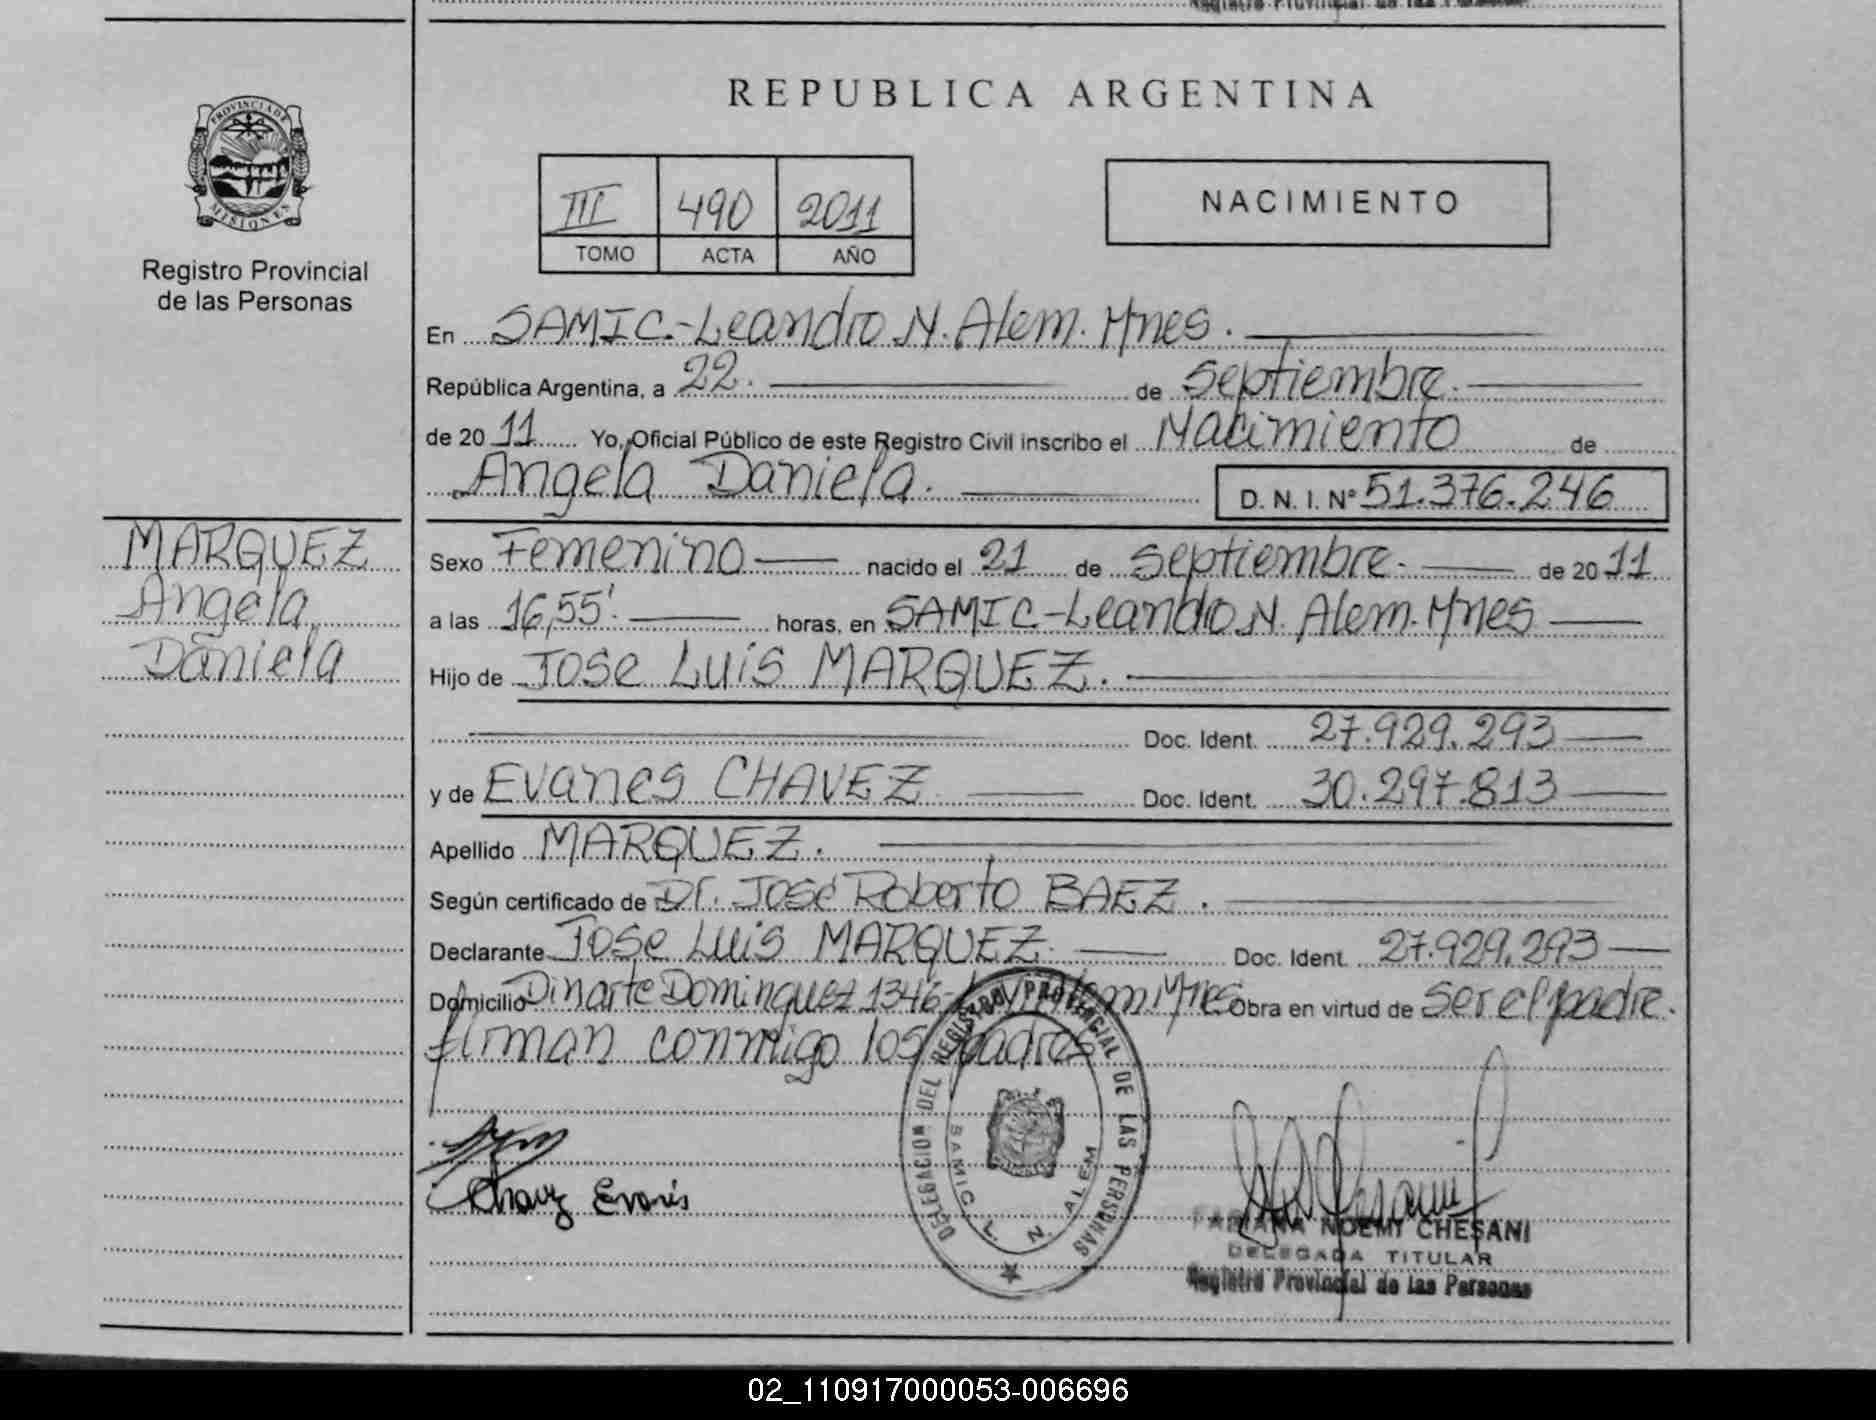 Registro Provincial de las Personas
PROVINCIA DE
MISIONES
Registro Provincial
de las Personas
MARQUEZ
Angela
Daniela
REPUBLICA ARGENTINA
III 490 2011
TOMO ACTA AÑO
NACIMIENTO
En SAMIC.-Leandro N. Alem. Mnes.
República Argentina, a 22. de septiembre.
de 2011 Yo, Oficial Público de este Registro Civil inscribo el Nacimiento de
Angela Daniela. D. N. I. Nº 51.376.246
Sexo Femenino nacido el 21 de septiembre. de 2011
a las 16,55'. horas, en SAMIC-Leandro N. Alem. Mnes
Hijo de Jose Luis MARQUEZ.
Doc. Ident. 27.929.293
y de Evanes CHAVEZ Doc. Ident. 30.297.813
Apellido MARQUEZ.
Según certificado de Dr. José Roberto BAEZ.
Declarante Jose Luis MARQUEZ. Doc. Ident. 27.929.293
Domicilio Dinarte Dominguez 1346- Alem Mnes Obra en virtud de ser el padre.
firman conmigo los padres
Chavez Evanes
DELEGACION DEL REGISTRO PROVINCIAL DE LAS PERSONAS
SAMIC L. N. ALEM
FABIANA NOEMI CHESANI
DELEGADA TITULAR
Registro Provincial de las Personas
02_110917000053-006696